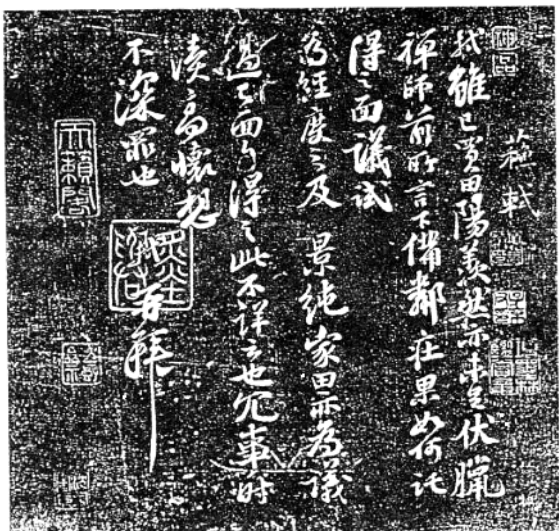 蘇軾
軾雖已買田陽羨然亦未足伏臘
禪師前所言下備鄰莊果如何託
得之面議試
為經度之及 景純家田亦為議
過已面白得之此不詳云也冗事時
瀆高懷想
不深罪也
再拜
天籟閣